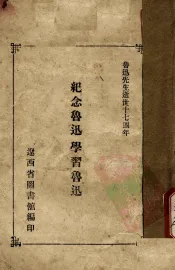 魯迅先生逝世十七週年
紀念魯迅 學習魯迅
遼西省圖書館編印